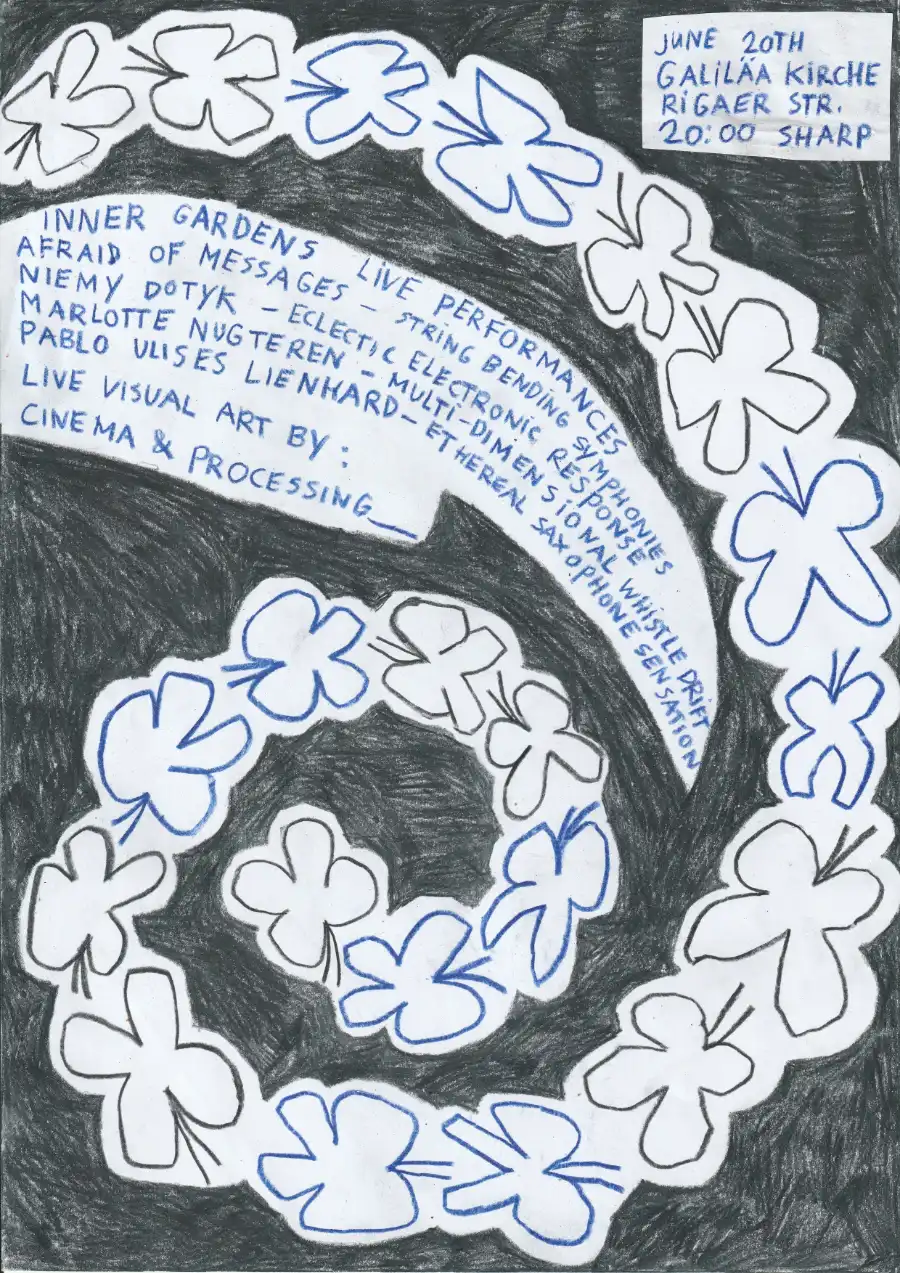 JUNE 20TH
GALILÄA KIRCHE
RIGAER STR.
20:00 SHARP
INNER GARDENS LIVE PERFORMANCES
AFRAID OF MESSAGES – STRING BENDING SYMPHONIES
NIEMY DOTYK – ECLECTIC ELECTRONIC RESPONSE
MARLOTTE NUGTEREN – MULTI-DIMENSIONAL WHISTLE DRIFT
PABLO ULISES LIENHARD – ETHEREAL SAXOPHONE SENSATION
LIVE VISUAL ART BY:
CINEMA & PROCESSING__